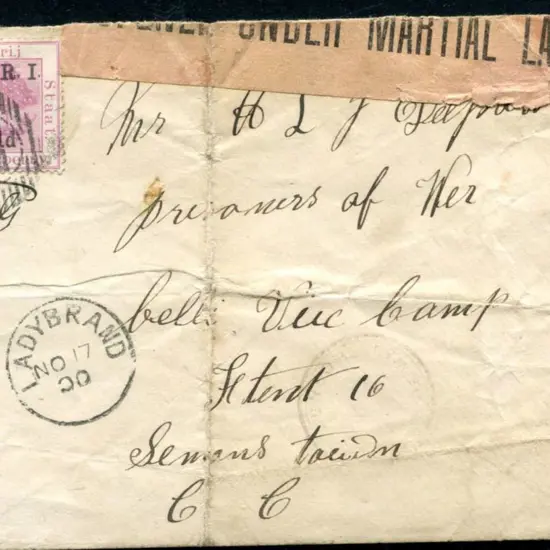 OPENED UNDER MARTIAL LA
rij
R. I.
Staat
1d
Mr H L J
prisoners of Wer
belle Vue Camp
tent 16
Semons touwn
C C
LADYBRAND
NO 17
00